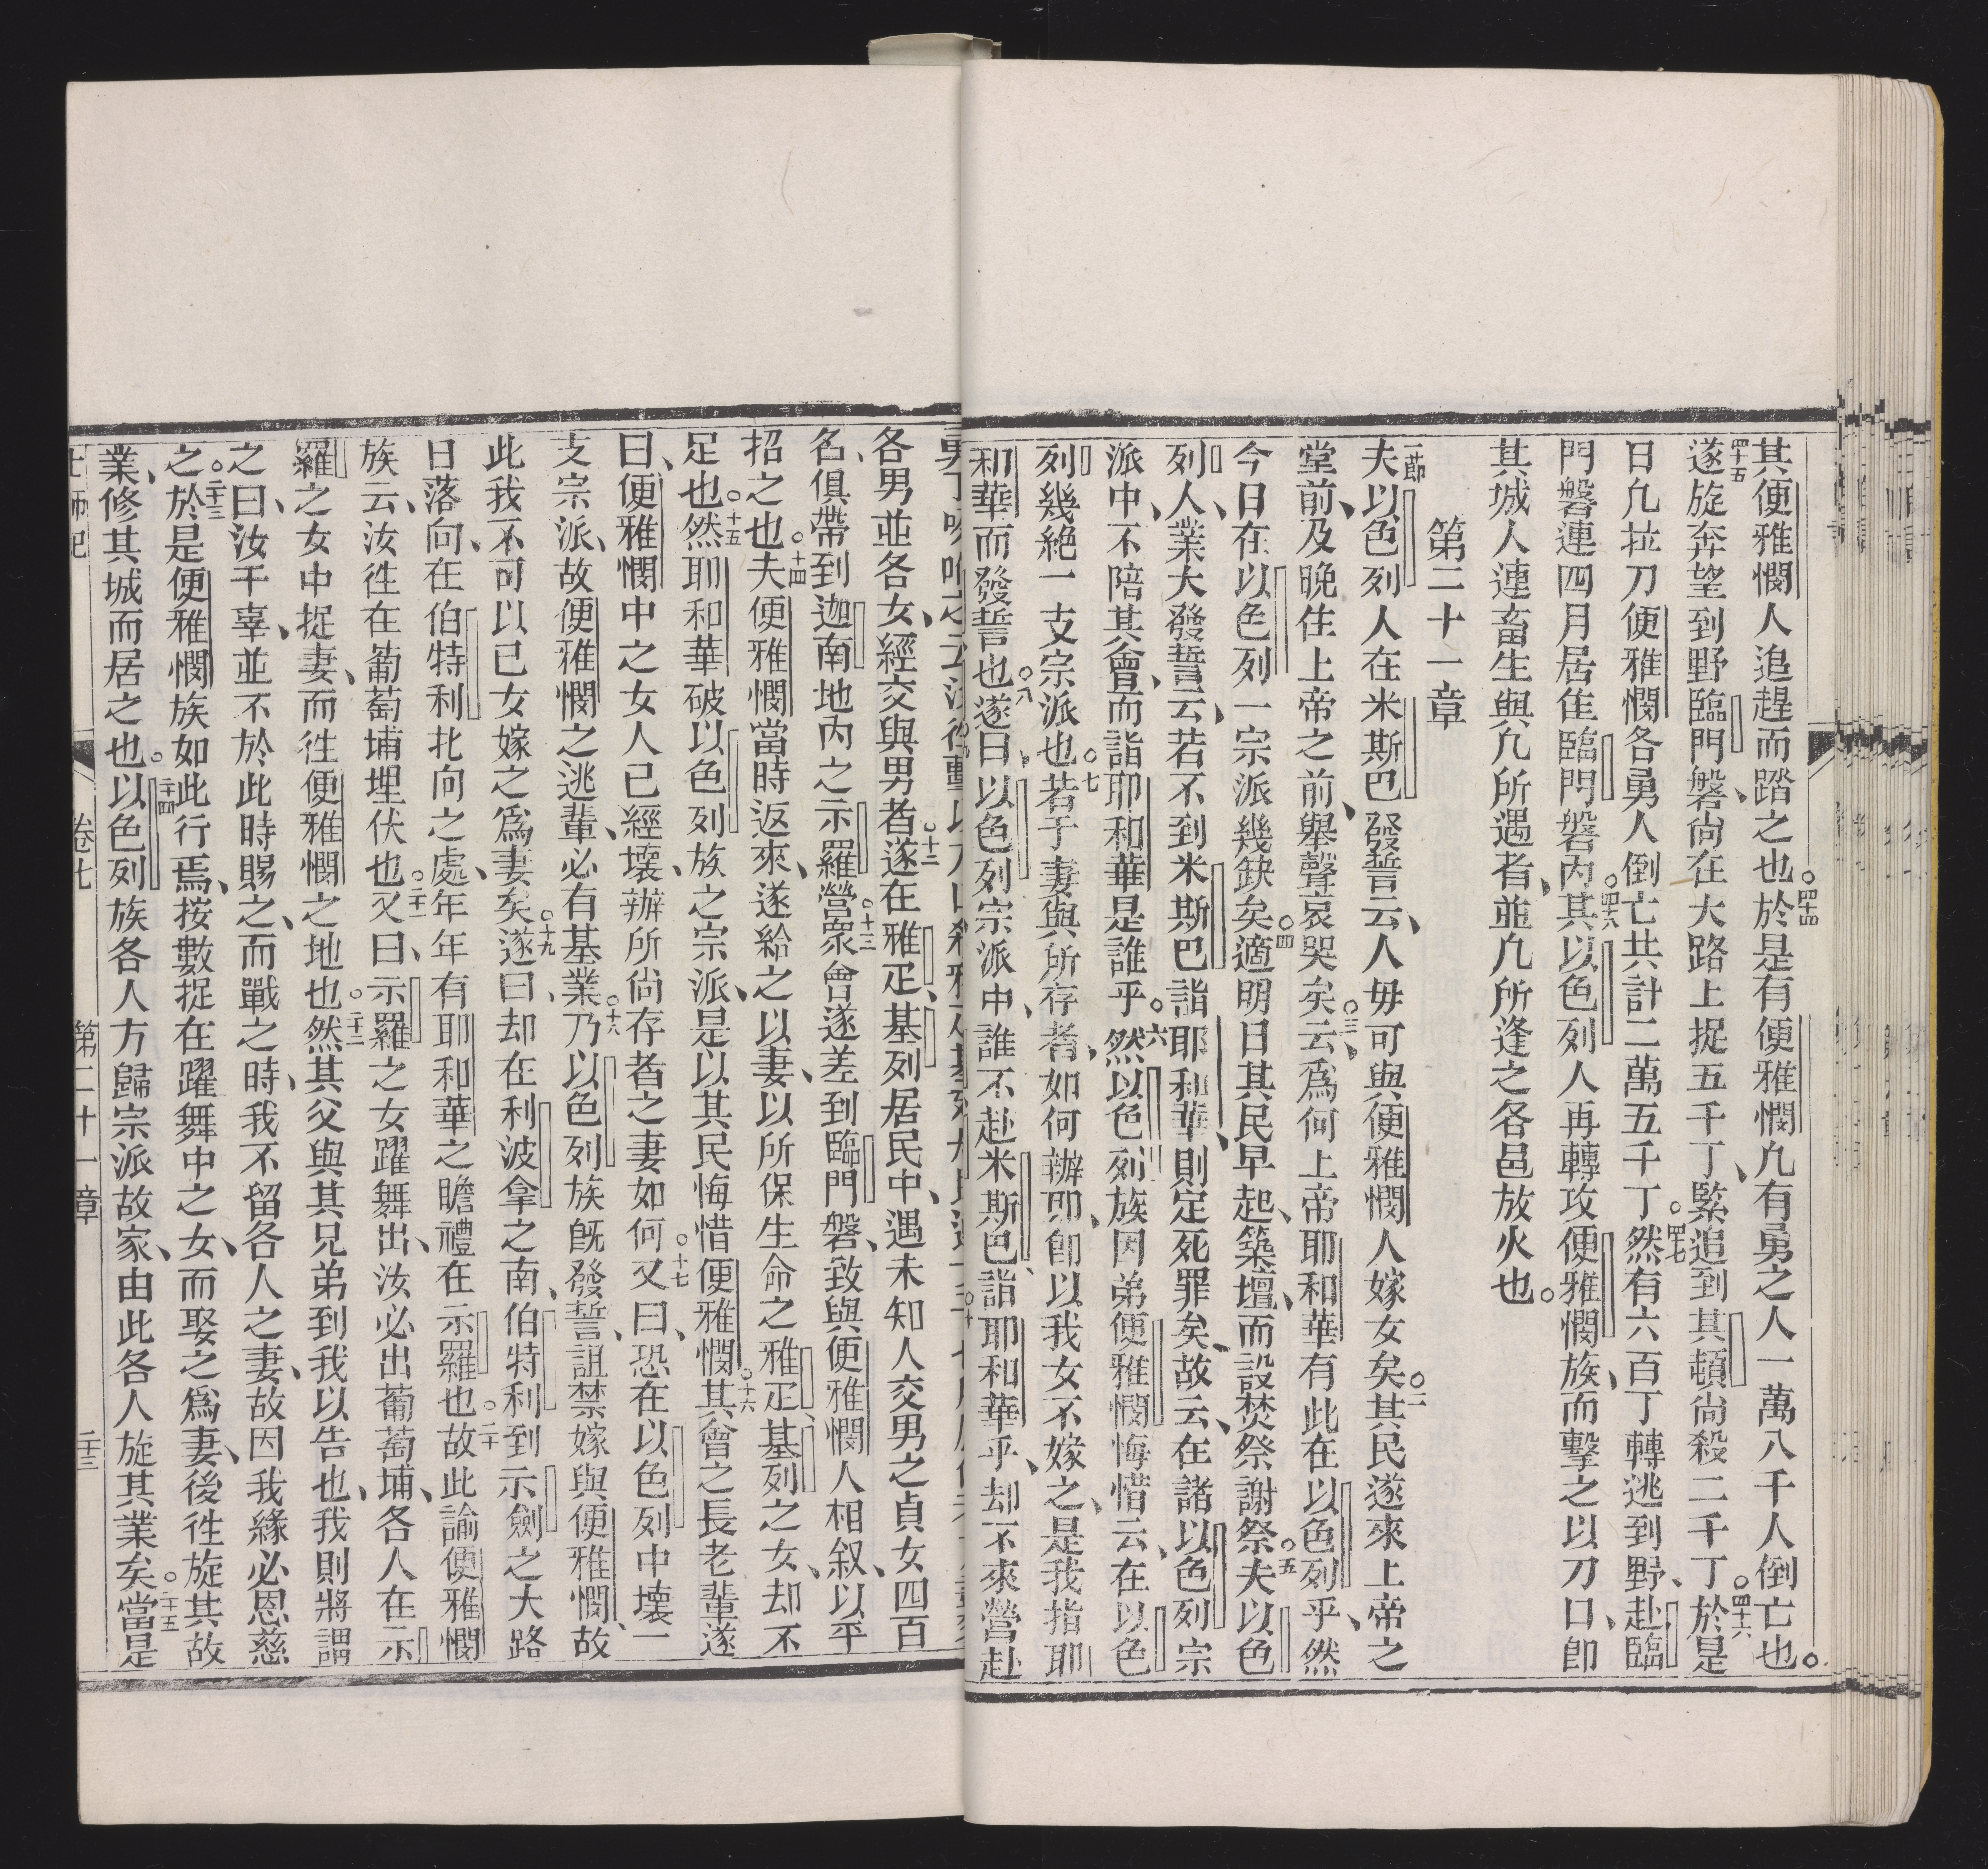 其便雅憫人追趕而踏之也○四十四於是有便雅憫凢有勇之人一萬八千人倒亡也○
四十五遂旋奔望到野臨門磐、尙在大路上捉五千丁、緊追到其頓尙殺二千丁○四十六於是
日凢拉刀便雅憫各勇人倒亡共計二萬五千丁○四十七然有六百丁轉逃到野、赴臨
門磐連四月居隹臨門磐內○四十八其以色列人再轉攻便雅憫族、而擊之以刀口、卽
其城人連畜生與凢所遇者、並凢所逢之各邑放火也○
第二十一章
一節夫以色列人在米斯巴發誓云、人毋可與便雅憫人嫁女矣○二其民遂來上帝之
堂前、及晚住上帝之前、舉聲哀哭矣○三云、爲何上帝耶和華有此在以色列乎、然
今日在以色列一宗派幾缺矣○四適明日其民早起、築壇、而設焚祭謝祭○五夫以色
列人、業大發誓云、若不到米斯巴詣耶和華、則定死罪矣、故云、在諸以色列宗
派中、不陪其會、而詣耶和華是誰乎○六然以色列族因弟便雅憫悔惜云、在以色
列幾絕一支宗派也○七若于妻與所存者、如何辦卽、卽以我女不嫁之、是我指耶
和華而發誓也○八遂曰、以色列宗派中、誰不赴米斯巴、詣耶和華乎、却不來營赴
各男並各女、經交與男者○十二遂在雅疋、基列居民中、遇未知人交男之貞女四百
名、俱帶到迦南地內之示羅營○十三衆會遂差到臨門磐、致與便雅憫人相叙、以平
招之也○十四夫便雅憫當時返來、遂給之以妻、以所保生命之雅疋、基列之女、却不
足也○十五然耶和華破以色列族之宗派、是以其民悔惜便雅憫○十六其會之長老輩遂
曰、便雅憫中之女人已經壞、辦所尙存者之妻如何○十七又曰、恐在以色列中壞一
支宗派、故便雅憫之逃輩、必有基業○十八乃以色列族旣發誓、詛禁嫁與便雅憫、故
此我不可以已女嫁之爲妻矣○十九遂曰、却在利波拿之南、伯特利到示劍之大路
日落向、在伯特利北向之處、年年有耶和華之瞻禮在示羅也○二十故此諭便雅憫
族云、汝徃在葡萄埔埋伏也○二十一又曰、示羅之女躍舞出、汝必出葡萄埔、各人在示
羅之女中捉妻、而徃便雅憫之地也○二十二然其父與其兄弟到我以告也、我則將謂
之曰、汝干辜、並不於此時賜之、而戰之時、我不留各人之妻、故因我緣必恩慈
之○二十三於是便雅憫族如此行焉、按數捉在躍舞中之女、而娶之爲妻、後徃旋其故
業、修其城而居之也○二十四以色列族各人方歸宗派故家、由此各人旋其業矣○二十五當是
士師記 卷七 第二十一章 三十三